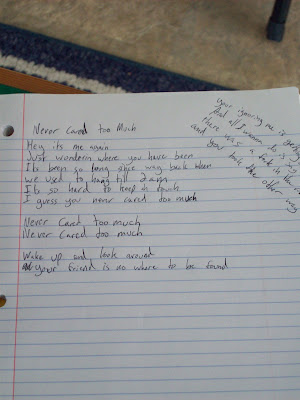 Never Cared too Much
Hey its me again
Just wonderin where you have been
Its been so long since way back when
we used to hang till 2 am
Its so hard to keep in touch
I guess you never cared too much
Never Cared too much
Never Cared too much
Wake up and look around
your friend is no where to be found
Your ignoring me is
And all I wanna do is
there was a fork in the
and you took the other way